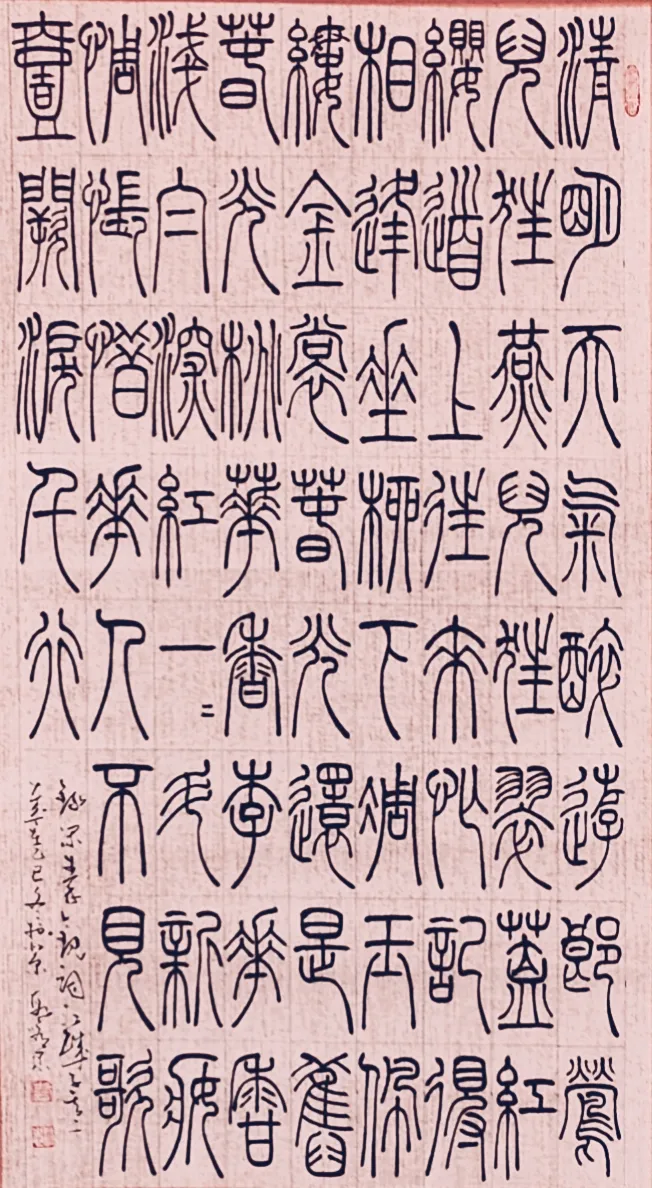 清明天氣醉遊郎鶯
兒狂燕兒狂翠蓋紅
纓道上往來忙記得
相逢垂柳下琱玉佩
縷金裳春光還是舊
春光桃華香李花香
淺白深紅一二斗新妝
惆悵惜花人不見歌
壹闋淚千行
錄宋秦觀詞江城子其二
乙巳冬